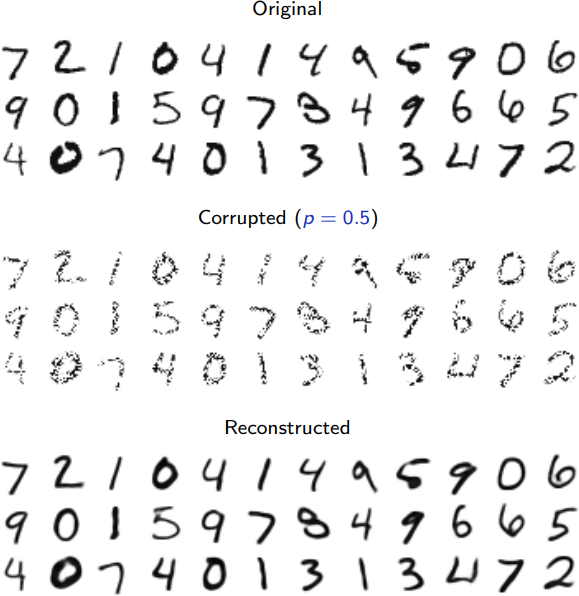 Original
7 2 1 0 4 1 4 9 5 9 0 6
9 0 1 5 9 7 3 4 9 6 6 5
4 0 7 4 0 1 3 1 3 4 7 2
Corrupted (p = 0.5)
7 2 1 0 4 1 4 9 5 9 0 6
9 0 1 5 9 7 3 4 9 6 6 5
4 0 7 4 0 1 3 1 3 4 7 2
Reconstructed
7 2 1 0 4 1 4 9 5 9 0 6
9 0 1 5 9 7 3 4 9 6 6 5
4 0 7 4 0 1 3 1 3 4 7 2